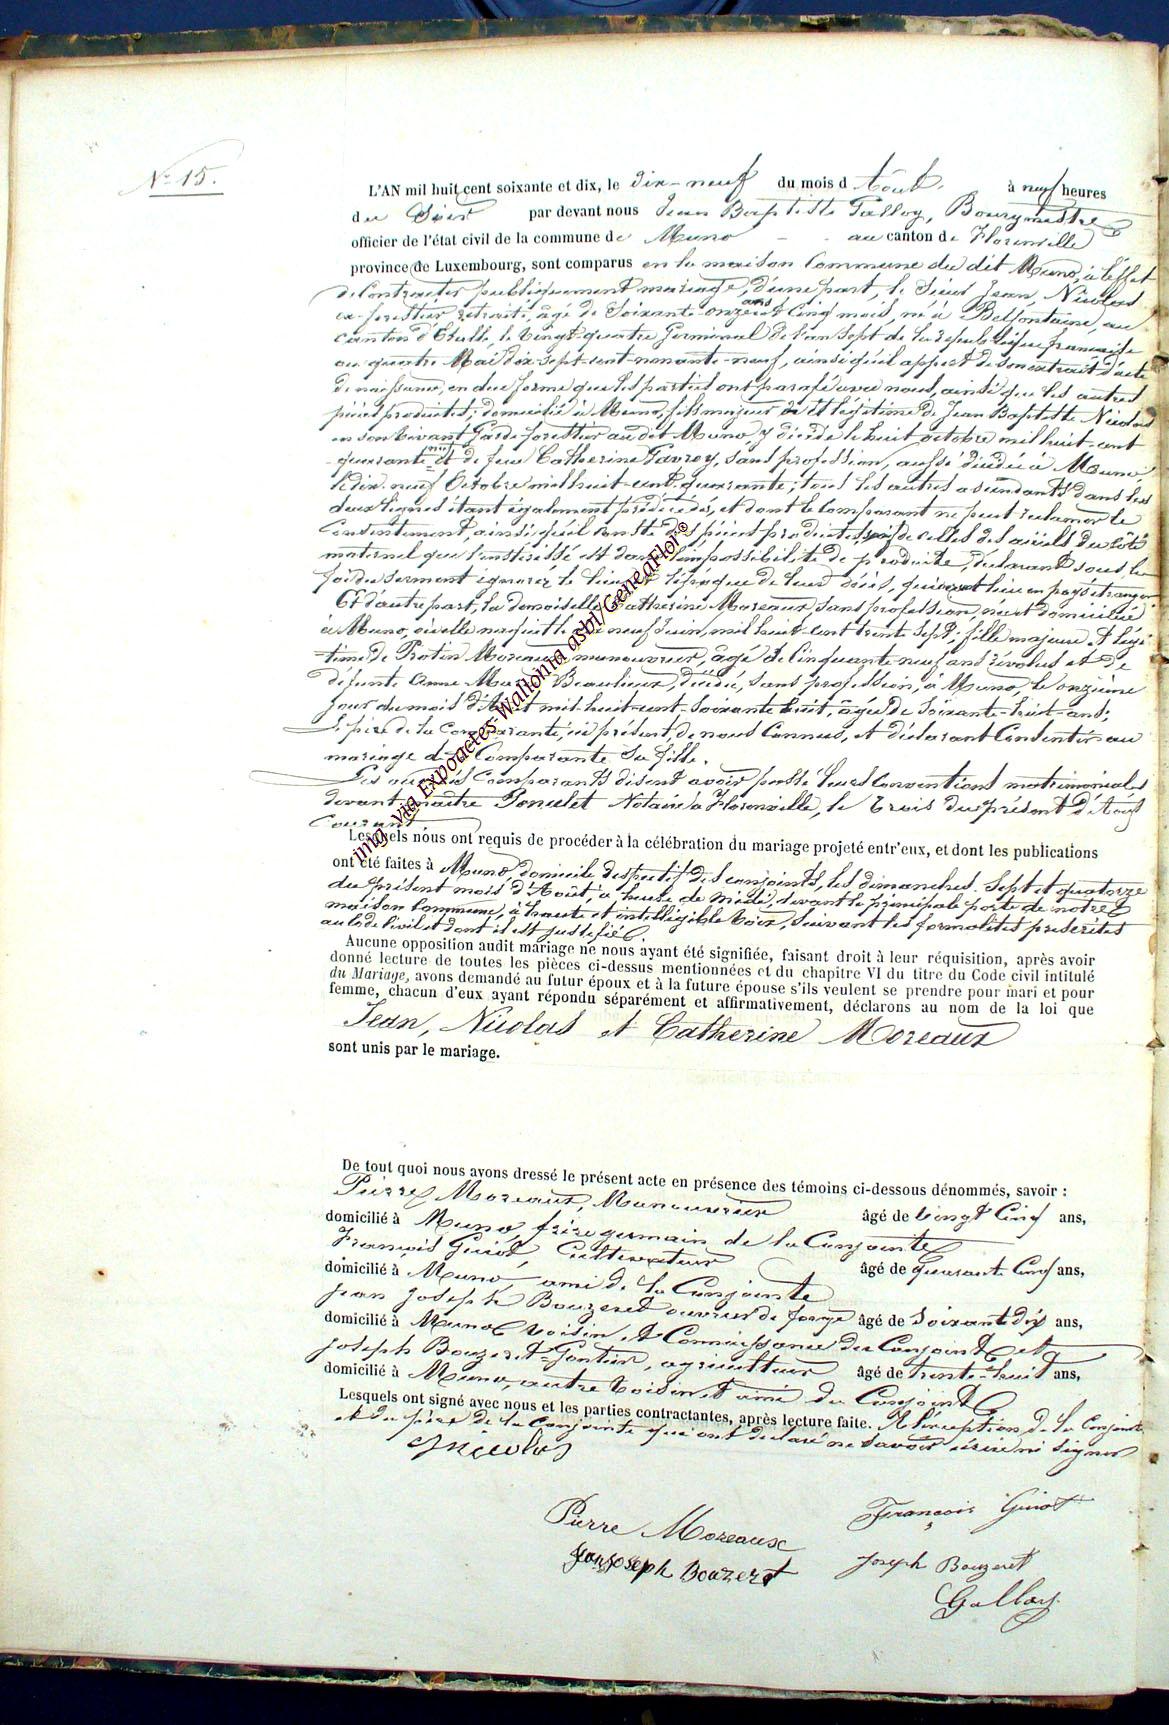 N° 15.
L'AN mil huit cent soixante et dix, le dix-neuf du mois d'Août à neuf heures
du Soir par devant nous Jean Baptiste Galloy, Bourgmestre
officier de l'état civil de la commune de Muno au canton de Florenville
province de Luxembourg, sont comparus en la maison Commune du dit Muno, à l'effet
de Contracter publiquement mariage, d'une part, le Sieur Jean, Nicolas
ex-forestier retraité, âgé de Soixante-onze ans et Cinq mois, né à Belfontaine, au
canton d'Etalle, le vingt-quatre Germinal de l'an sept de la république française
ou quatre Mai dix-sept-cent-nonante-neuf, ainsi qu'il appert de son extrait d'acte
de naissance, en due forme que les parties ont parafé avec nous, ainsi que les autres
pièces produites; domicilié à Muno, fils majeur et légitime de Jean Baptiste Nicolas
en son vivant Garde forestier au dit Muno, y décédé le huit octobre mil huit-cent
quarante et de feue Catherine Gavroy, sans profession, aussi décédée à Muno,
le dix-neuf Octobre mil huit-cent-quarante; tous les autres ascendants dans les
deux lignes étant également prédécédés, et dont le Comparant ne peut réclamer le
Consentement, ainsi qu'il conste des pièces produites, sauf de celles des aïeuls du côté
maternel que l'intéressé est dans l'impossibilité de produire, déclarant sous la
foi du serment ignorer le lieu et l'époque de leur décès, qui eut lieu en pays étranger
Et d'autre part, la demoiselle Catherine Moreaux, sans profession, née et domiciliée
à Muno, où elle naquit le neuf Juin, mil huit-cent trente-sept; fille majeure et légi-
time de Protin Moreaux, manouvrier, âgé de Cinquante neuf ans révolus et de
défunte Anne Marie Beaulieux, décédée, sans profession, à Muno, le onzième
jour du mois d'Août mil-huit-cent-soixante huit, âgée de soixante-huit-ans;
Le père de la Comparante, ici présent, de nous Connus, et déclarant Consentir au
mariage de la Comparante Sa fille.
Les Comparants disent avoir passé leurs Conventions matrimoniales
devant maître Poncelet Notaire à Florenville, le trois du présent d'Août
Courant
Lesquels nous ont requis de procéder à la célébration du mariage projeté entr'eux, et dont les publications
ont été faites à Muno, domicile respectif des conjoints, les dimanches Sept et quatorze
du présent mois d'Août, à heure de midi, devant la principale porte de notre
maison Commune, à haute et intelligible voix, suivant les formalités prescrites
au Code Civil et dont il est justifié.
Aucune opposition audit mariage ne nous ayant été signifiée, faisant droit à leur réquisition, après avoir
donné lecture de toutes les pièces ci-dessus mentionnées et du chapitre VI du titre du Code civil intitulé
du Mariage, avons demandé au futur époux et à la future épouse s'ils veulent se prendre pour mari et pour
femme, chacun d'eux ayant répondu séparément et affirmativement, déclarons au nom de la loi que
Jean, Nicolas et Catherine Moreaux
sont unis par le mariage.
De tout quoi nous avons dressé le présent acte en présence des témoins ci-dessous dénommés, savoir :
Pierre Moreaux, Manouvrier âgé de vingt Cinq ans,
domicilié à Muno, frère germain de la Conjointe
François Guiot, Cultivateur âgé de quarante Cinq ans,
domicilié à Muno ami de la Conjointe
Jean Joseph Bouzeret ouvrier de forge âgé de Soixante dix ans,
domicilié à Muno voisin et Connaissance du Conjoint et
Joseph Bouzeret-Pontier, agriculteur âgé de trente-huit ans,
domicilié à Muno, autre voisin et ami du Conjoint
Lesquels ont signé avec nous et les parties contractantes, après lecture faite. A l'exception de la Conjointe
et du père de la Conjointe qui ont déclaré ne Savoir écrire ni signer
JNicolas
Pierre Moreaux
François Guiot
Jean joseph Bouzeret
Joseph Bouzeret
Galloy
img via Expoactes-Wallonia asbl/GeneaFlor©